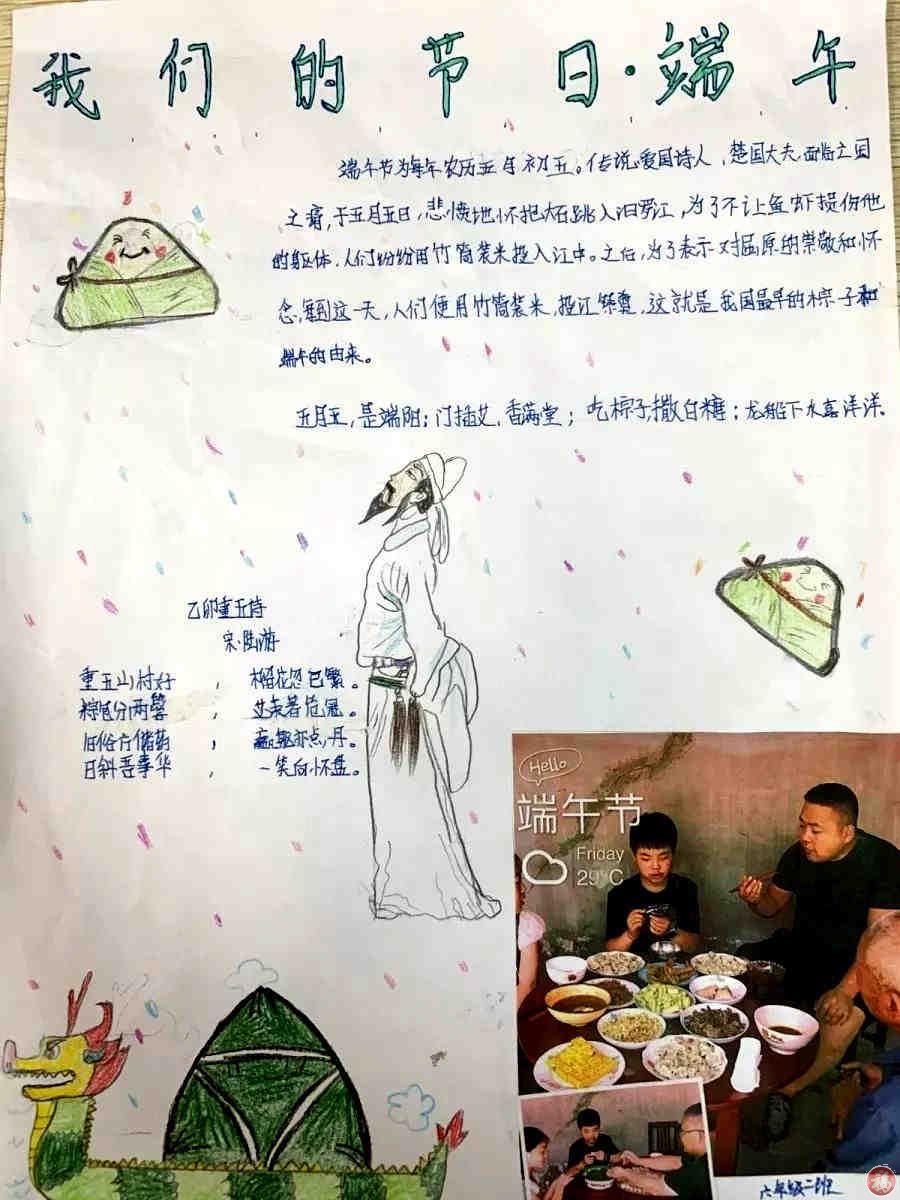 我们的节日·端午
端午节为每年农历五月初五。传说爱国诗人,楚国大夫面临亡国
之痛,于五月五日,悲愤地怀抱大石跳入汨罗江,为了不让鱼虾损伤他
的躯体,人们纷纷用竹筒装米投入江中。之后,为了表示对屈原的崇敬和怀
念,每到这一天,人们便用竹筒装米,投江祭奠,这就是我国最早的粽子和
端午的由来。
五月五,是端阳;门插艾,香满堂;吃粽子,撒白糖;龙船下水喜洋洋。
乙卯重五诗
宋·陆游
重五山村好,榴花忽已繁。
粽包分两髻,艾束著危冠。
旧俗方储药,羸躯亦点丹。
日斜吾事毕,一笑向杯盘。
Hello
端午节
Friday
29°C
六年级二班
福